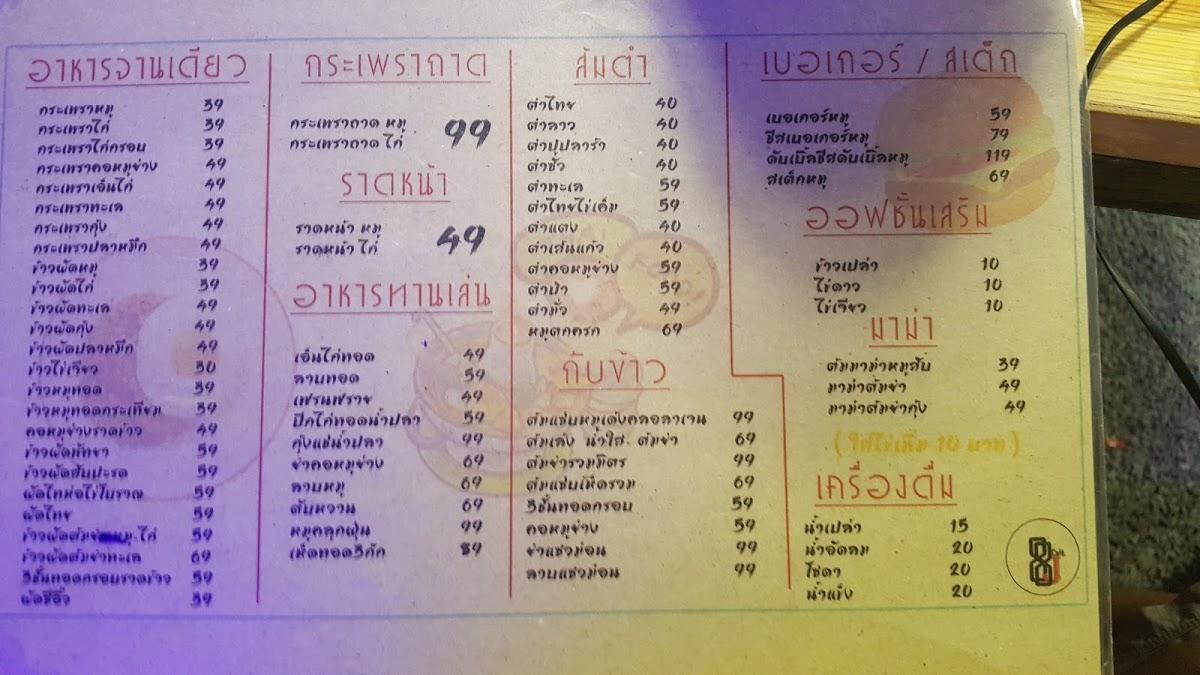 อาหารจานเดียว
กระเพราหมู 39
กระเพราไก่ 39
กระเพราไก่กรอบ 39
กระเพราคอหมูย่าง 49
กระเพราเอ็นไก่ 49
กระเพราทะเล 49
กระเพรากุ้ง 49
กระเพราปลาหมึก 49
ข้าวผัดหมู 39
ข้าวผัดไก่ 39
ข้าวผัดทะเล 49
ข้าวผัดกุ้ง 49
ข้าวผัดปลาหมึก 49
ข้าวไข่เจียว 30
ข้าวหมูทอด 39
ข้าวหมูทอดกระเทียม 39
คอหมูย่างราดข้าว 49
ข้าวผัดพัทยา 59
ข้าวผัดสับปะรด 59
ผัดไทห่อไข่โบราณ 59
ผัดไทย 59
ข้าวผัดต้มยำ ไก่ 59
ข้าวผัดต้มยำทะเล 69
3ชั้นทอดกรอบราดข้าว 59
ผัดซีอิ๊ว 39
กระเพราถาด
กระเพราถาด หมู 99
กระเพราถาด ไก่
ราดหน้า
ราดหน้า หมู 49
ราดหน้า ไก่
อาหารทานเล่น
เอ็นไก่ทอด 49
ลาบทอด 59
เฟรนฟราย 49
ปีกไก่ทอดน้ำปลา 59
กุ้งแช่น้ำปลา 99
ยำคอหมูย่าง 69
ลาบหมู 69
ตับหวาน 69
หมูคลุกฝุ่น 99
เห็ดทอด3กัก 89
ส้มตำ
ตำไทย 40
ตำลาว 40
ตำปูปลาร้า 40
ตำซั่ว 40
ตำทะเล 59
ตำไทยไข่เค็ม 59
ตำแตง 40
ตำเส้นแก้ว 40
ตำคอหมูย่าง 59
ตำป่า 59
ตำมั่ว 49
หมูตกครก 69
กับข้าว
ต้มแซ่บหมูเด้งคลอลาเจน 99
ต้มเล้ง น้ำใส ต้มยำ 69
ต้มยำรวมมิตร 99
ต้มแซ่บเห็ดรวม 69
3ชั้นทอดกรอบ 59
คอหมูย่าง 59
ยำแซวม่อน 99
ลาบแซวม่อน 99
เบอเกอร์ / สเต็ก
เบอเกอร์หมู 59
ชีสเบอเกอร์หมู 79
ดับเบิ้ลชีสดับเบิ้ลหมู 119
สเต็กหมู 69
ออฟชั่นเสริม
ข้าวเปล่า 10
ไข่ดาว 10
ไข่เจียว 10
มาม่า
ต้มมาม่าหมูสับ 39
มาม่าต้มยำ 49
มาม่าต้มยำกุ้ง 49
(ใส่ไข่เพิ่ม 10 บาท)
เครื่องดื่ม
น้ำเปล่า 15
น้ำอัดลม 20
โซดา 20
น้ำแข็ง 20